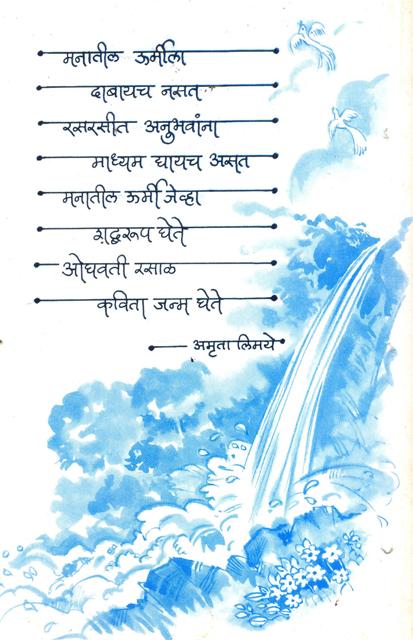 मनातील ऊर्मीला
दाबायच नसत
रसरसीत अनुभवांना
माध्यम द्यायच असत
मनातील ऊर्मी जेव्हा
शद्बरूप घेते
ओघवती रसाळ
कविता जन्म घेते
अमृता लिमये